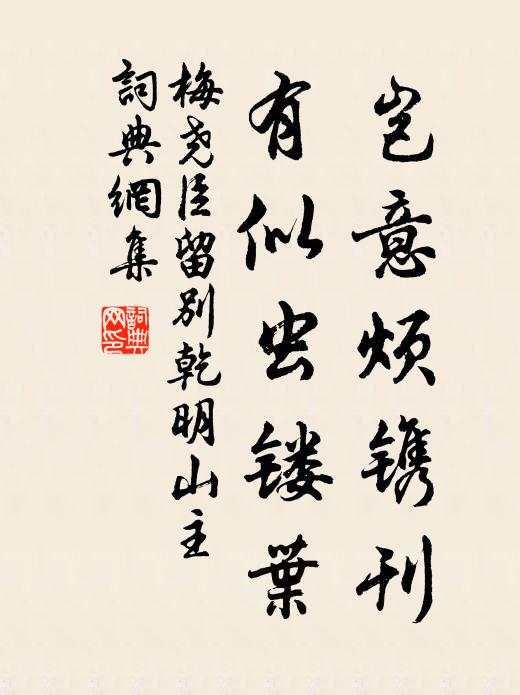 岂意烦镌刊
有似虫镂葉
梅尧臣留别乾明山主
詞典網集
詞典网印